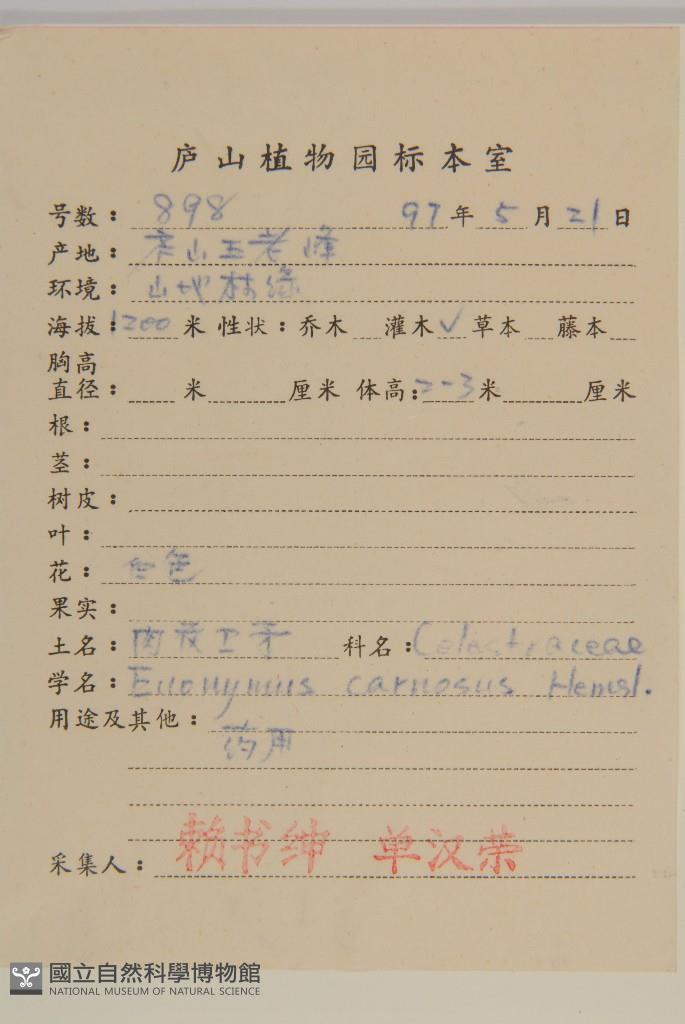 庐山植物园标本室
号数: 898 97年5月21日
产地: 庐山五老峰
环境: 山地林缘
海拔: 1200米 性状: 乔木 灌木√草本 藤本
胸高
直径: 米 厘米 体高: 2-3米 厘米
根:
茎:
树皮:
叶:
花: 白色
果实:
土名: 肉花卫矛 科名: Celastraceae
学名: Euonymus carnosus Hemsl.
用途及其他:
药用
采集人: 赖书绅 单汉荣
國立自然科學博物館
NATIONAL MUSEUM OF NATURAL SCIENCE